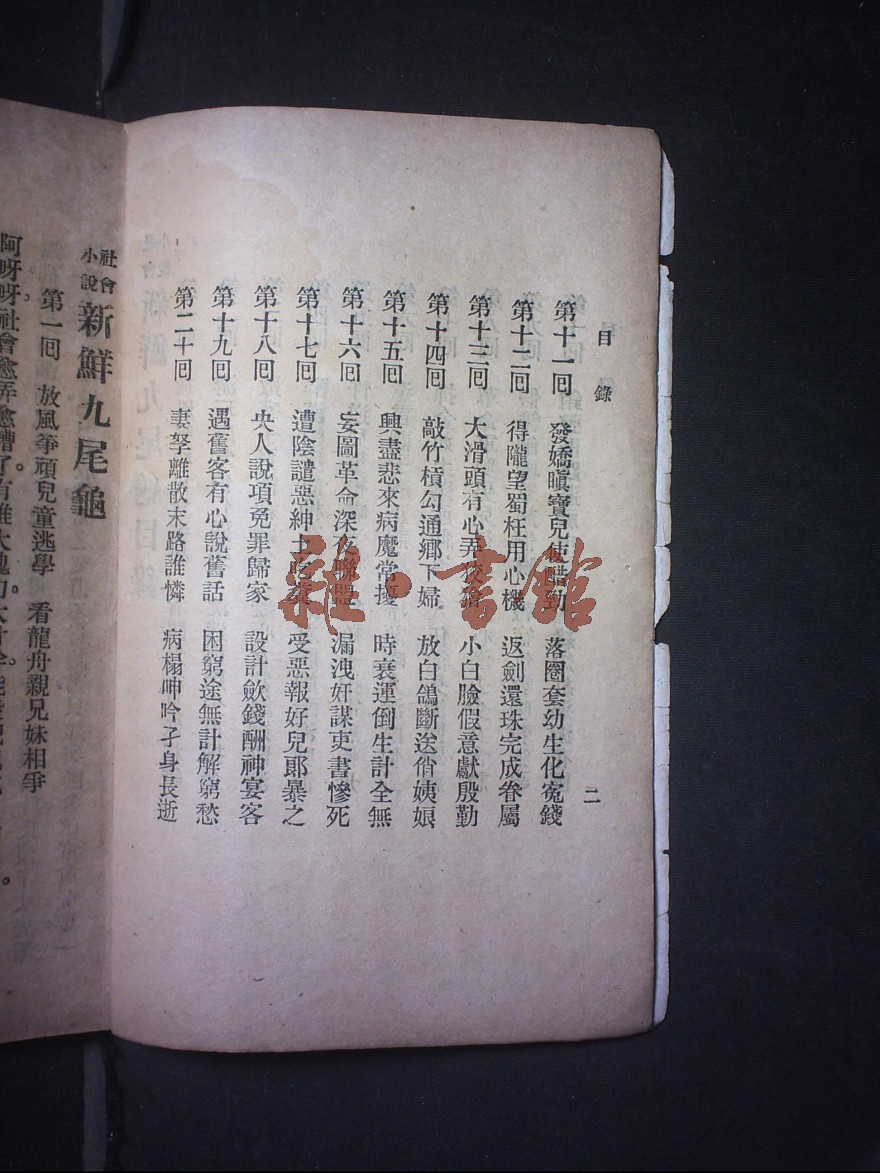 目錄
二
第十一回 發嬌嗔寶兒使醋勁 落圈套幼生化冤錢
第十二回 得隴望蜀枉用心機 返劍還珠完成眷屬
第十三回 大滑頭有心弄狡獪 小白臉假意獻殷勤
第十四回 敲竹槓勾通鄉下婦 放白鴿斷送俏姨娘
第十五回 興盡悲來病魔常擾 時衰運倒生計全無
第十六回 妄圖革命深夜聯盟 漏洩奸謀吏書慘死
第十七回 遭陰譴惡紳士吃糞 受惡報好兒郎暴之
第十八回 央人說項免罪歸家 設計歛錢酬神宴客
第十九回 遇舊客有心說舊話 困窮途無計解窮愁
第二十回 妻孥離散末路誰憐 病榻呻吟孑身長逝
社會小說 新鮮九尾龜
第一回 放風箏頑兒童逃學 看龍舟親兄妹相爭
阿呀呀社會愈弄愈糟了
雜·書館